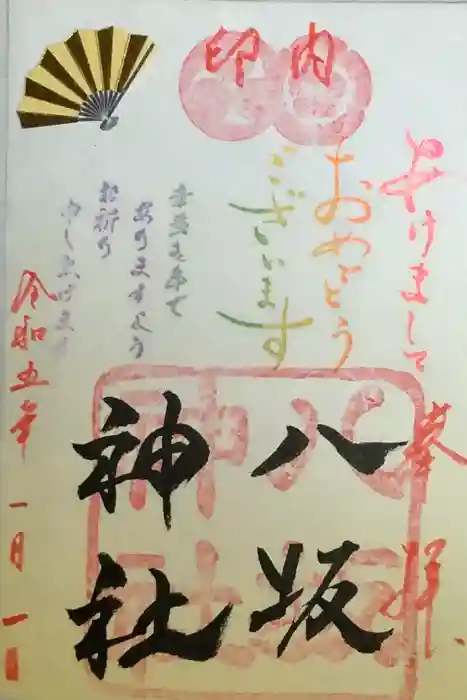 印内
あけまして
おめでとう
ございます
幸多き年で
ありますよう
お祈り
申し上げます
奉拝
八坂
神社
八坂
神社
令和五年 一月一日